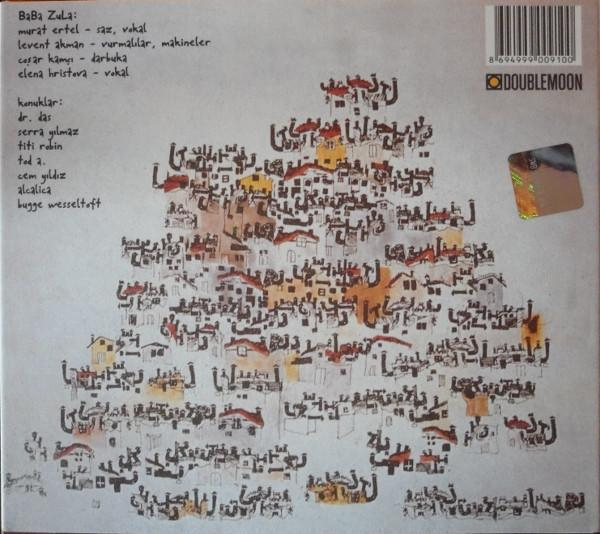 BaBa ZuLa:
murat ertel - saz, vokal
levent akman - vurmalılar, makineler
coşar kamçı - darbuka
elena hristova - vokal
konuklar:
dr. das
serra yılmaz
titi robin
tod a.
cem yıldız
alcalica
bugge wesseltoft
8 694999 009100
DOUBLEMOON